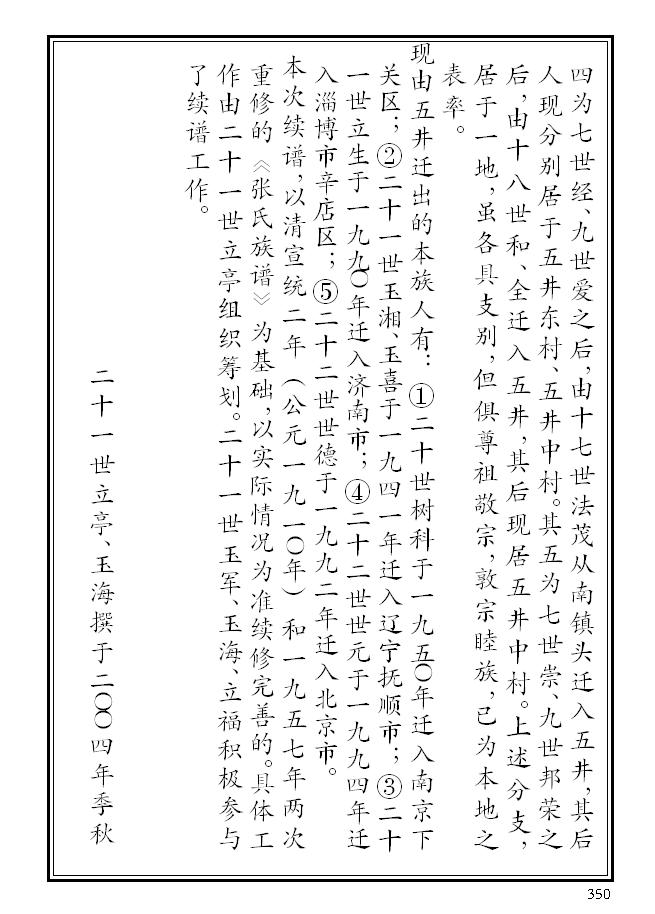 四为七世经、九世爱之后，由十七世法茂从南镇头迁入五井，其后
人现分别居于五井东村、五井中村。其五为七世崇、九世邦荣之
后，由十八世和、全迁入五井，其后现居五井中村。上述分支，
居于一地，虽各具支别，但俱尊祖敬宗，敦宗睦族，已为本地之
表率。
现由五井迁出的本族人有：①二十世树科于一九五〇年迁入南京下
关区；②二十一世玉湘、玉喜于一九四一年迁入辽宁抚顺市；③二十
一世立生于一九九〇年迁入济南市；④二十二世世元于一九九四年迁
入淄博市辛店区；⑤二十二世世德于一九九二年迁入北京市。
本次续谱，以清宣统二年（公元一九一〇年）和一九五七年两次
重修的《张氏族谱》为基础，以实际情况为准续修完善的。具体工
作由二十一世立亭组织筹划。二十一世玉军、玉海、立福积极参与
了续谱工作。
二十一世立亭、玉海撰于二〇〇四年季秋
350